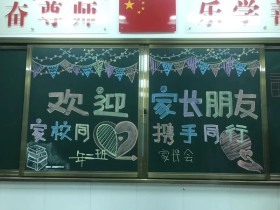 奋 尊师 乐学善
欢迎 家长朋友
家校同心 携手同行
一年二班 家长会